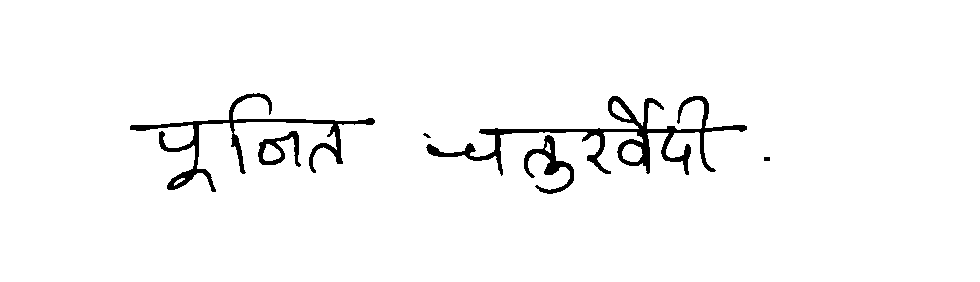 पूनित चतुरवेदी .